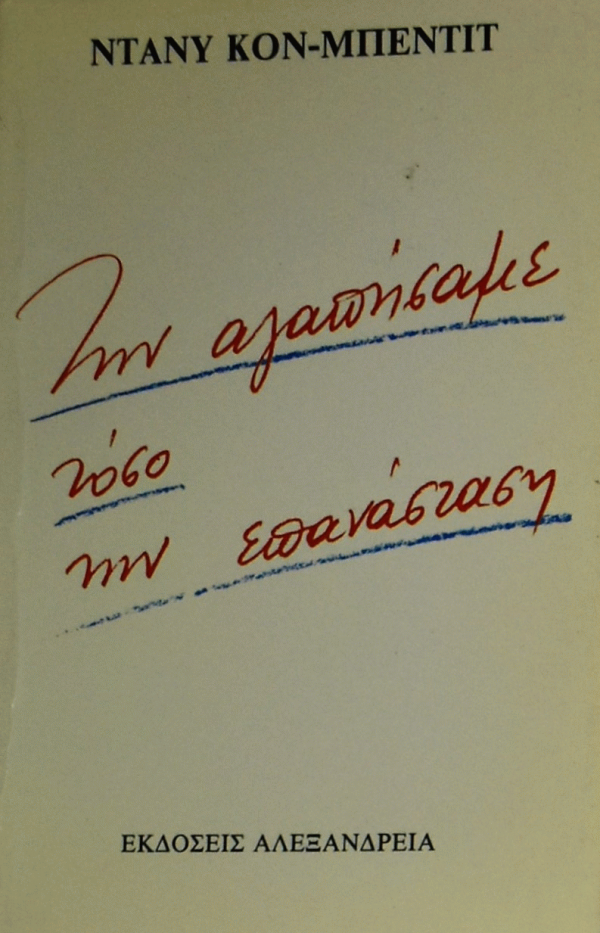 ΝΤΑΝΥ ΚΟΝ-ΜΠΕΝΤΙΤ
Την αγαπήσαμε
τόσο
την επανάσταση
ΕΚΔΟΣΕΙΣ ΑΛΕΞΑΝΔΡΕΙΑ